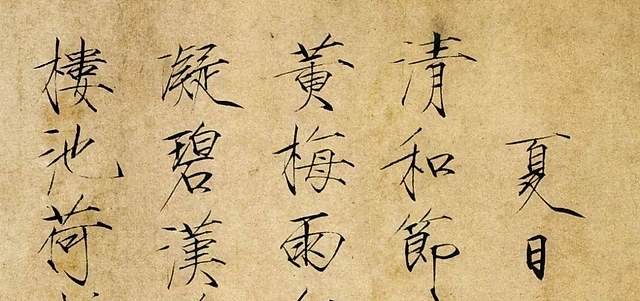 夏日
清和節
黃梅雨
凝碧漢
樓池荷